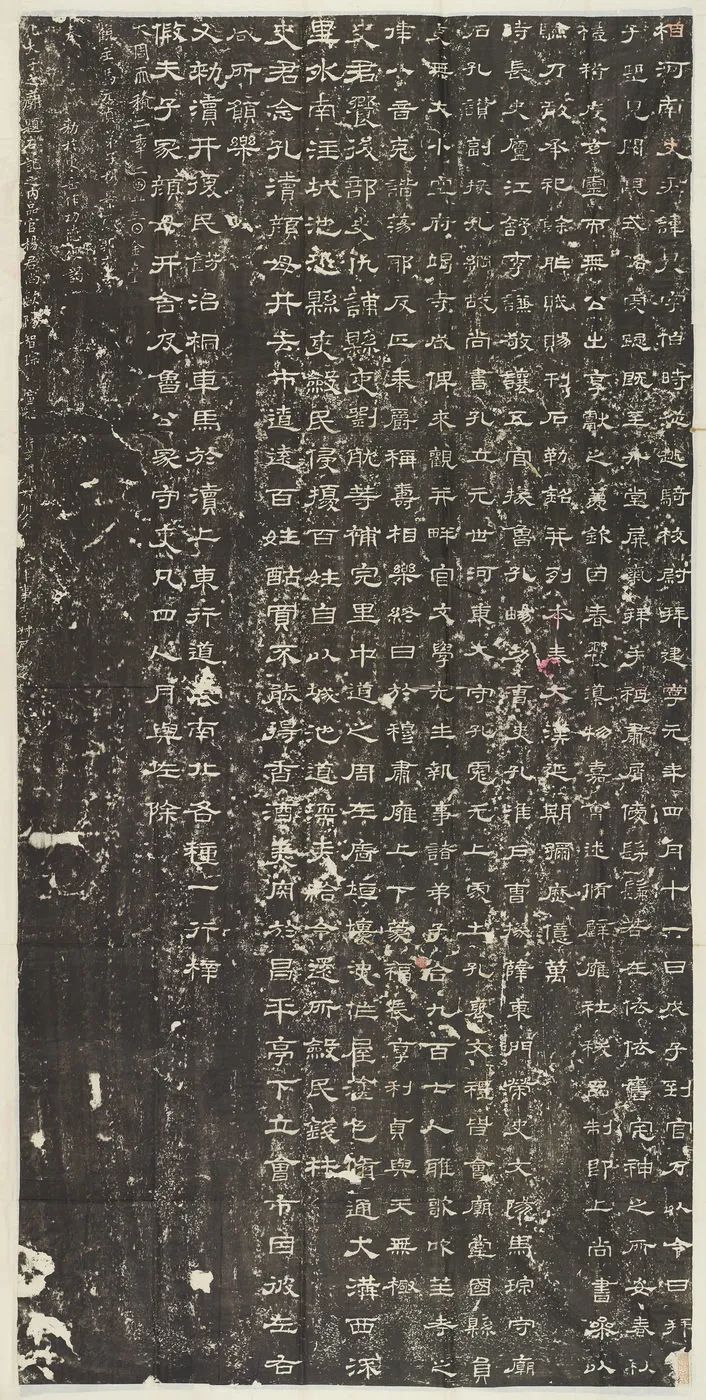 相河南史君諱晨字伯時從越騎校尉拜建寧元年四月十一日戊子到官乃以令日拜
子望見闕觀式路虔跽既至升堂屏氣拜手祗肅屑僾髣髴若在依依舊宅神之所安春秋
復禮稽度玄靈而無公出享獻之薦欽因春饗導物嘉會述脩辟雍社稷品制即上尚書參以
驗乃敢承祀餘胙賦賜刊石勒銘并列本奏大漢延期彌歷億萬
時長史廬江舒李謙敬讓五官掾魯孔暢功曹史孔淮戶曹掾薛東門榮史文陽馬琮守廟
石孔讚副掾孔綱故尚書孔立元世河東大守孔彪元上處士孔褒文禮皆會廟堂國縣員
吏無大小空府竭寺咸俾來觀并畔官文學先生執事諸弟子合九百七人雅歌吹笙考之
律八音克諧蕩邪反正奉爵稱壽相樂終日於穆肅雍上下蒙福長享利貞與天無極
史君饗後部史仇誧縣吏劉耽等補完里中道之周左廧垣壞決作屋塗色脩通大溝西流
里外南注城池恐縣吏斂民侵擾百姓自以城池道濡麥給令還所斂民錢材
史君念孔瀆顏母井去市遼遠百姓酤買不能得香酒美肉於昌平亭下立會市因彼左右
咸所願樂
又勑瀆井復民飭治桐車馬於瀆上東行道表南北各種一行梓
假夫子冢顏母井舍及魯公冢守吏凡四人月與佐除